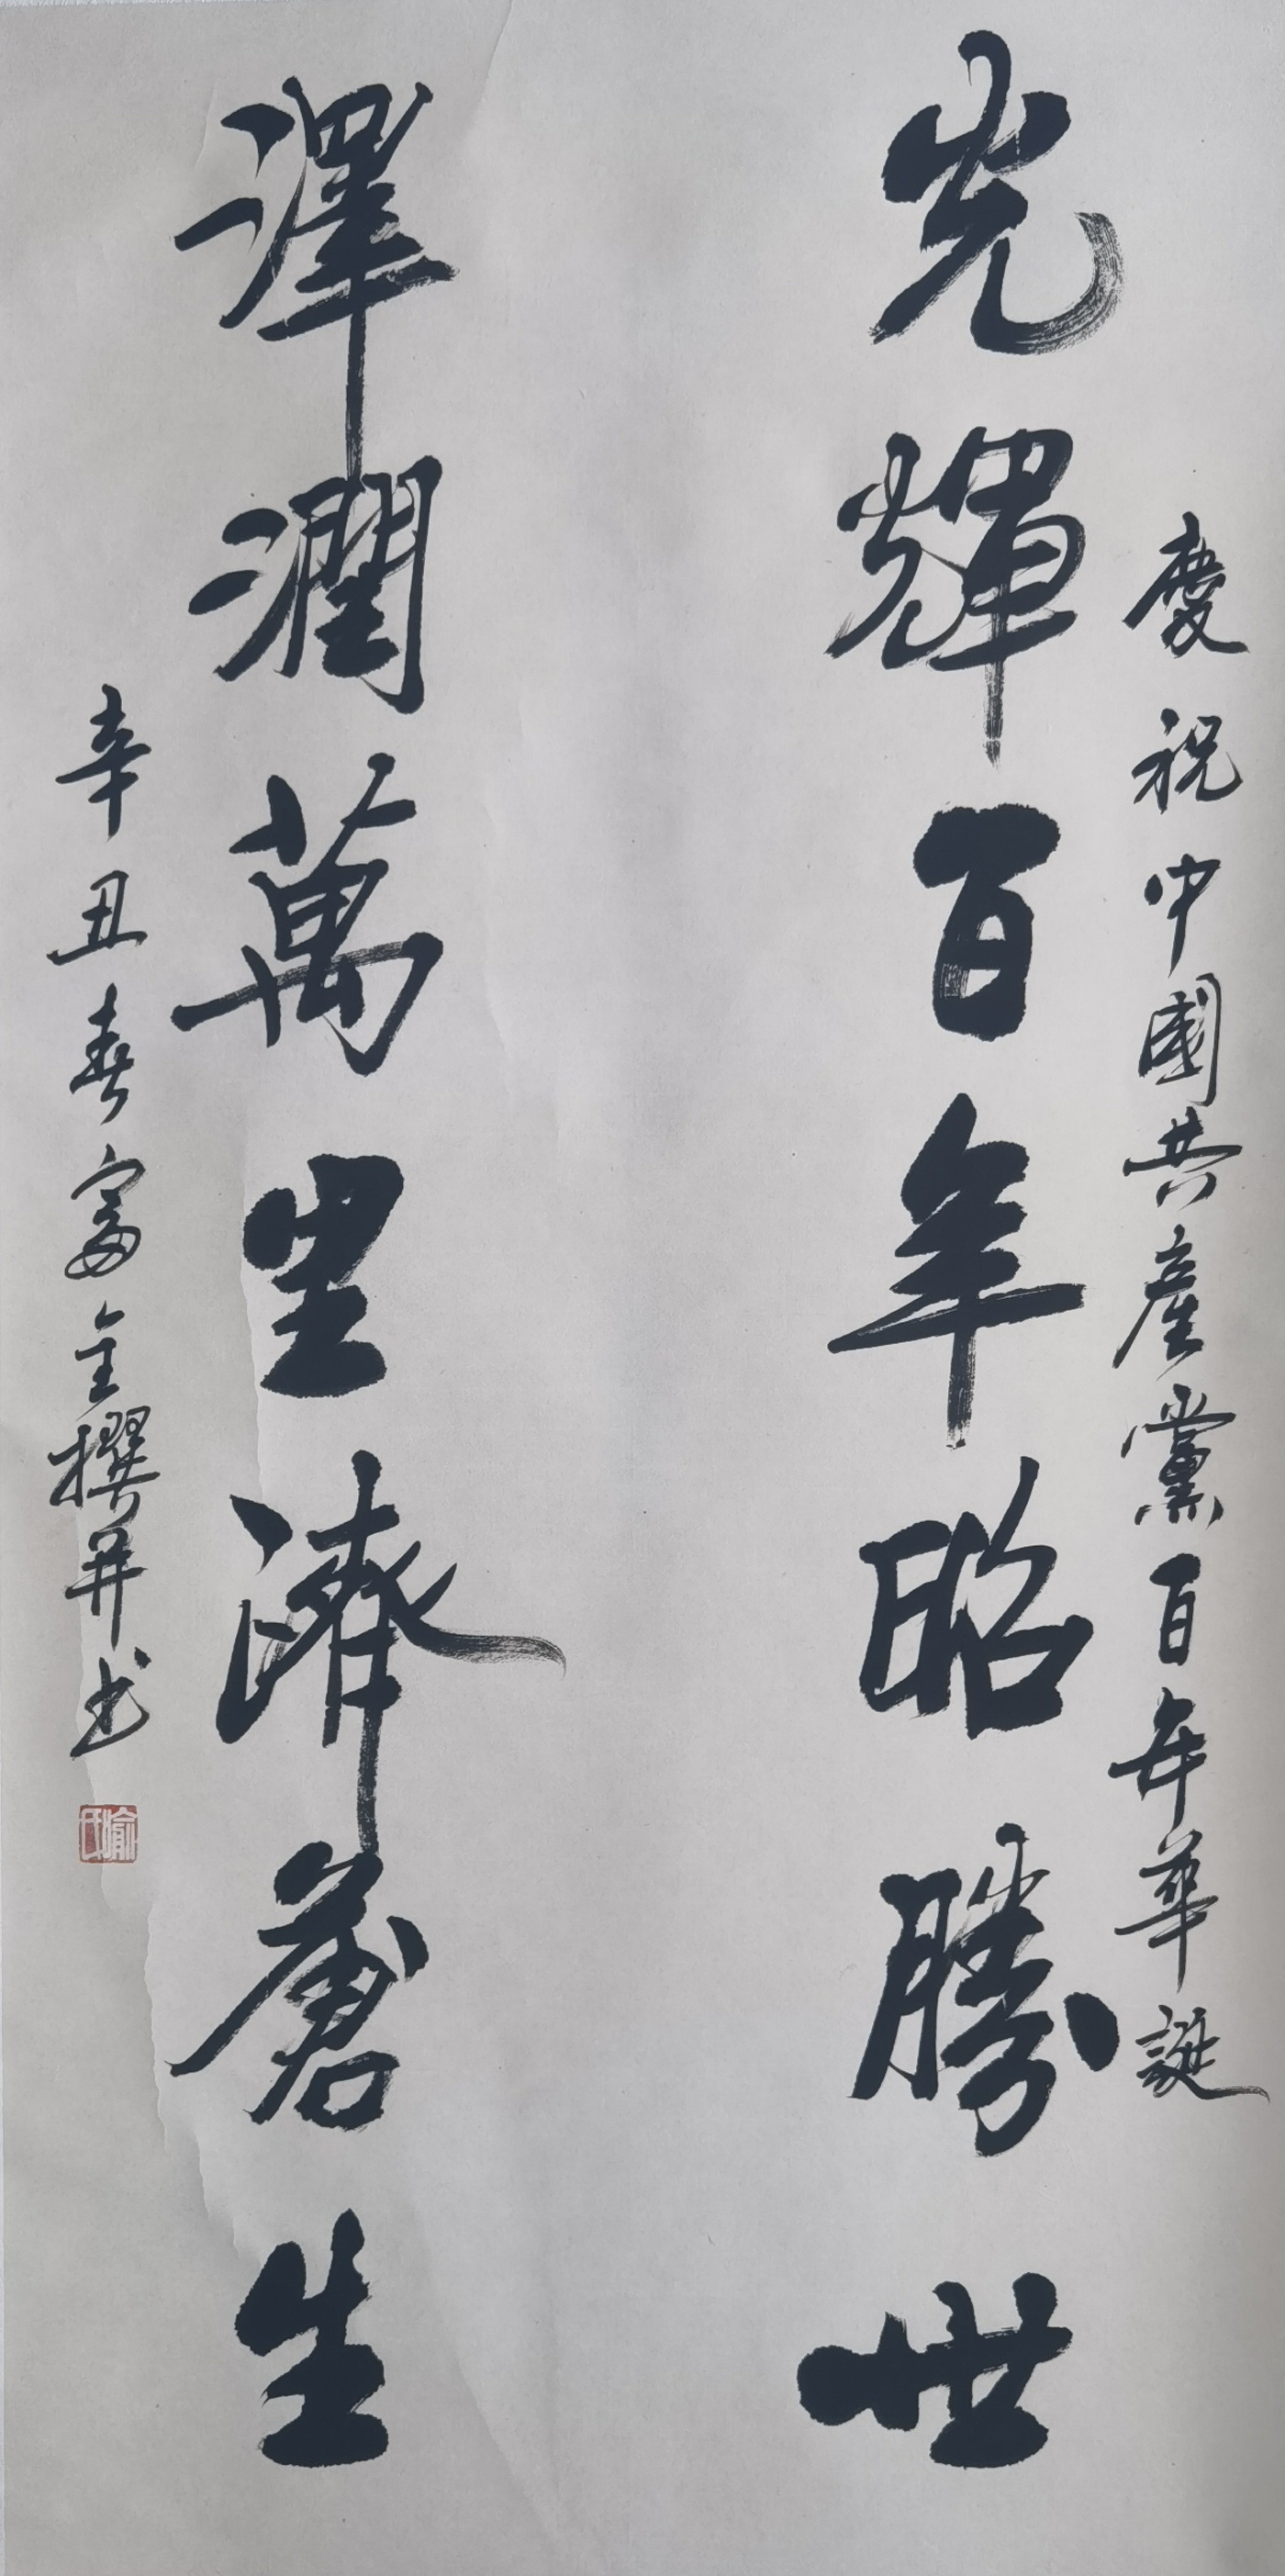 慶祝中國共產黨百年華誕
光輝百年昭勝世
澤潤萬里濟蒼生
辛丑春富全撰并书
喻氏